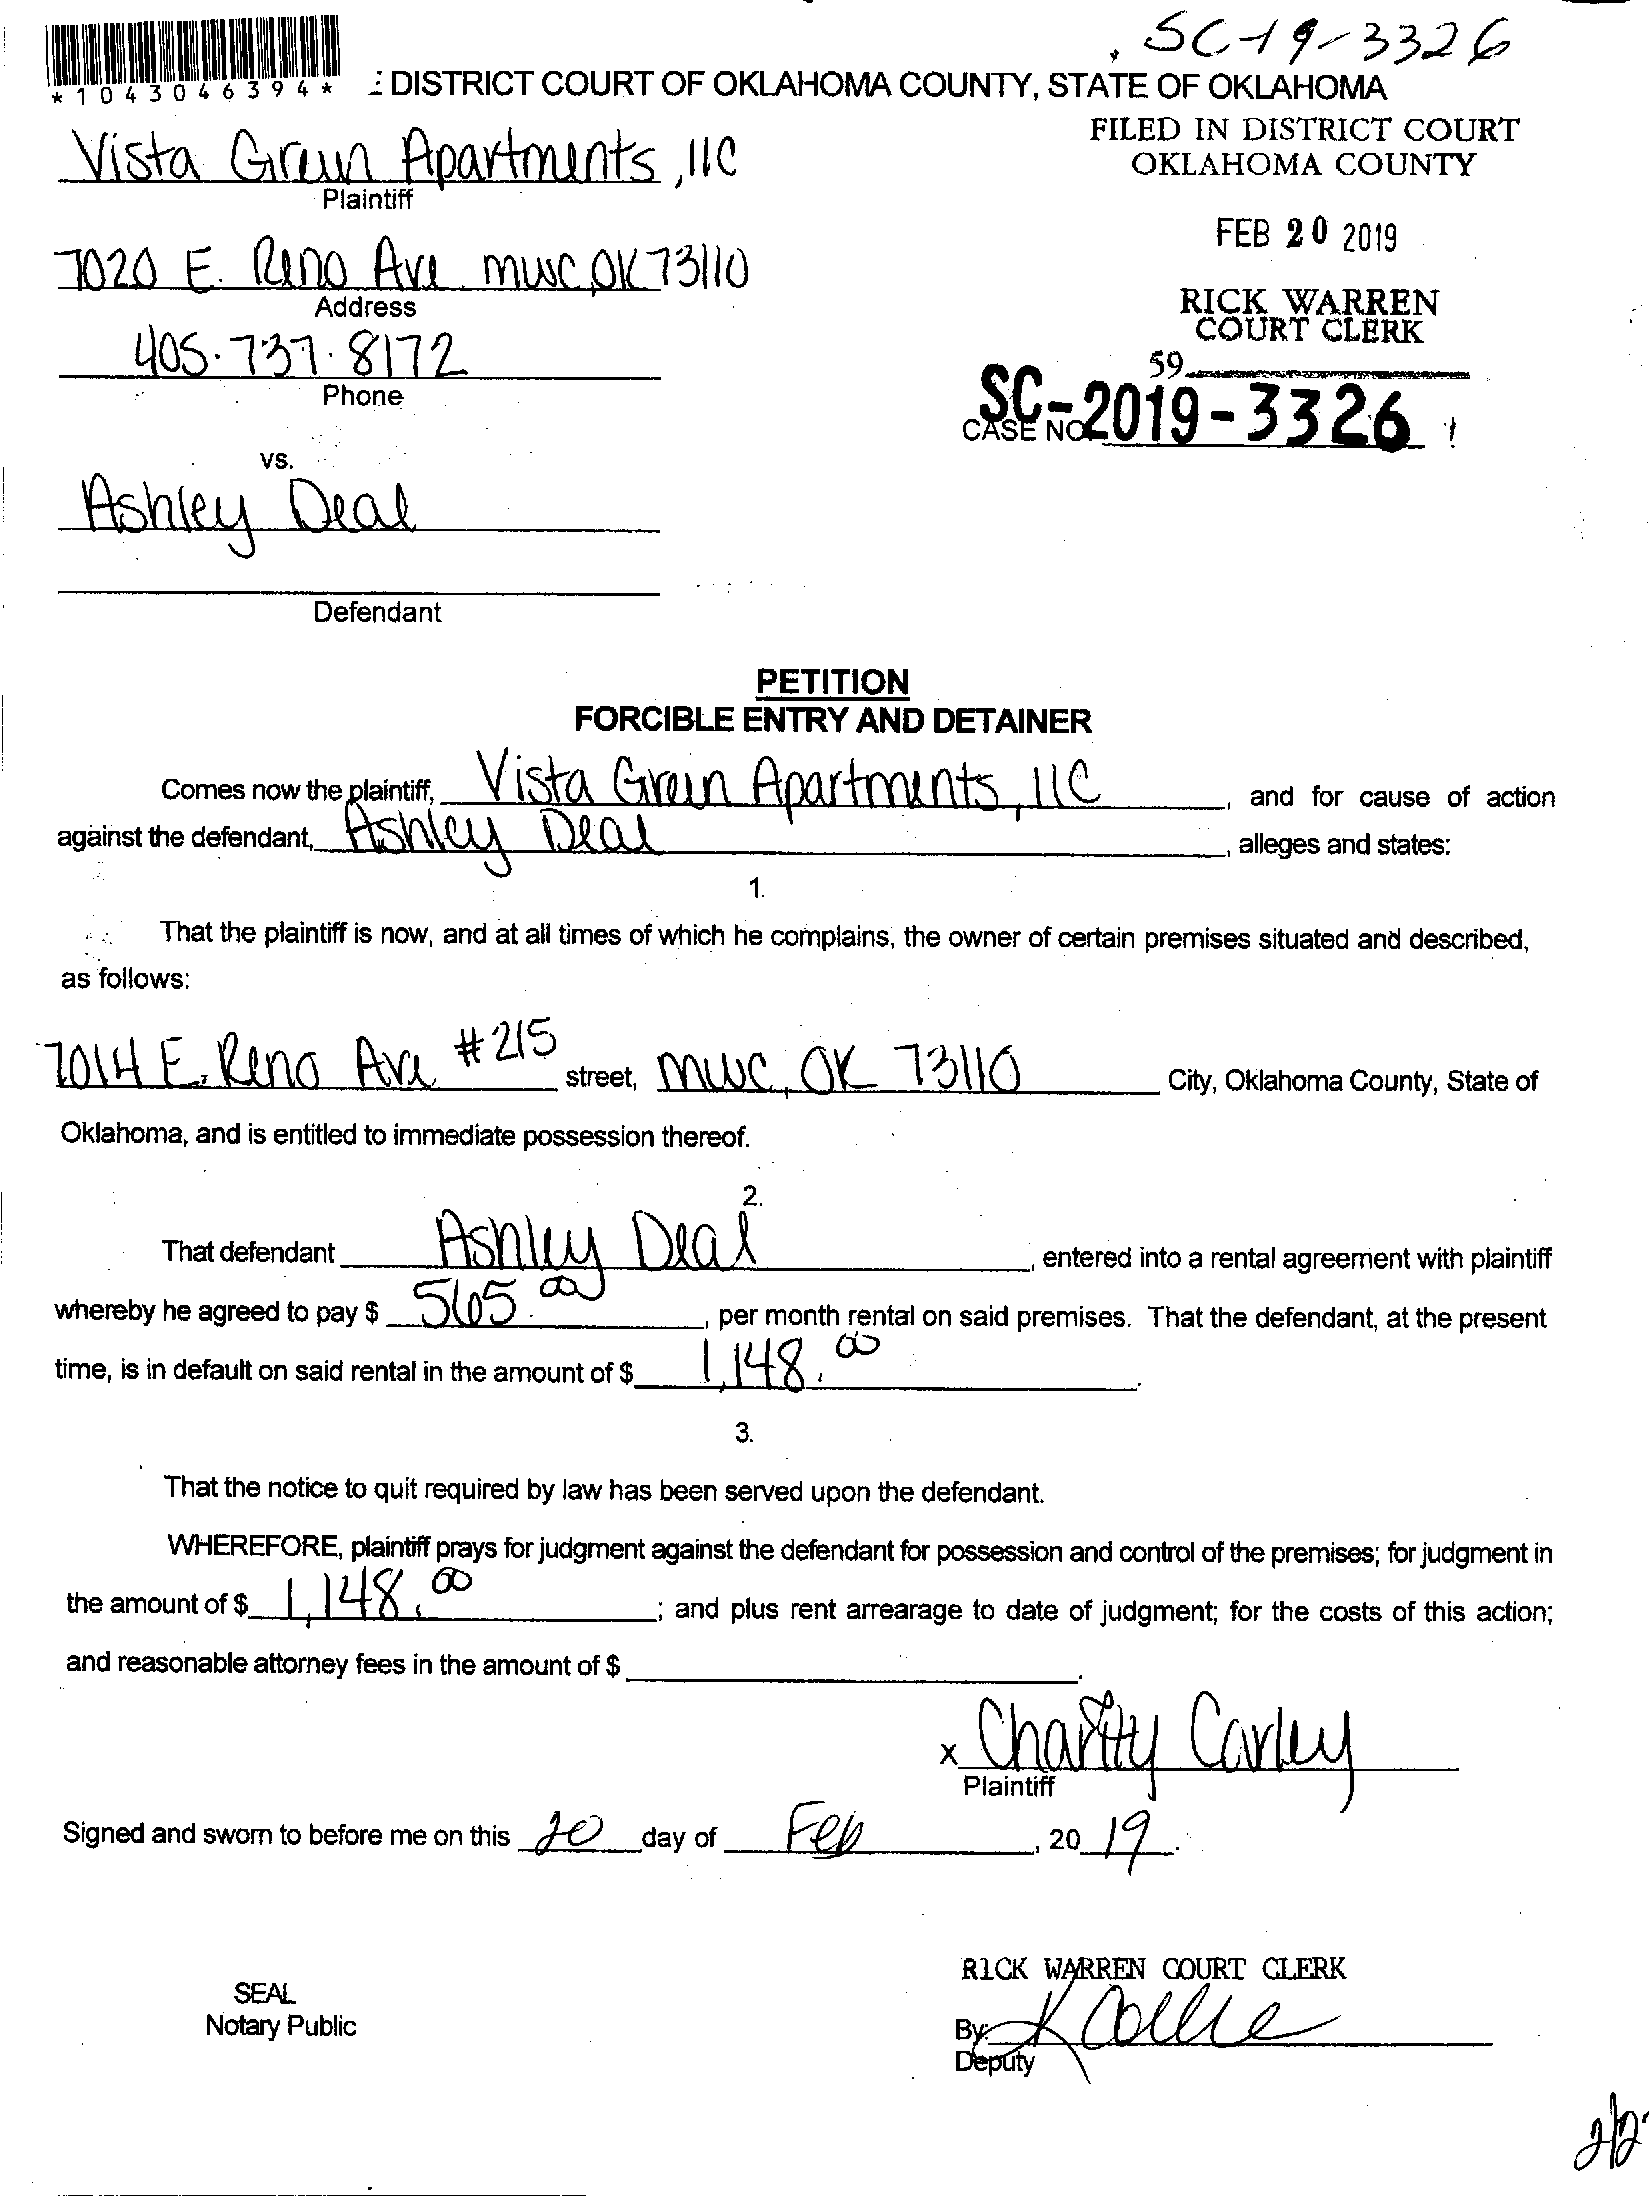 SC-19-3326
*1043046394*
: DISTRICT COURT OF OKLAHOMA COUNTY, STATE OF OKLAHOMA
Vista Green Apartments, llC
Plaintiff
7020 E. Reno Ave MWC OK 73110
Address
405-737-8172
Phone
FILED IN DISTRICT COURT
OKLAHOMA COUNTY
FEB 20 2019
RICK WARREN
COURT CLERK
59
CASE NO. SC-2019-3326
vs.
Ashley Deal
Defendant
PETITION
FORCIBLE ENTRY AND DETAINER
Comes now the plaintiff, Vista Green Apartments, llC, and for cause of action
against the defendant, Ashley Deal, alleges and states:
1.
That the plaintiff is now, and at all times of which he complains, the owner of certain premises situated and described,
as follows:
7014 E. Reno Ave #215 street, MWC, OK 73110 City, Oklahoma County, State of
Oklahoma, and is entitled to immediate possession thereof.
2.
That defendant Ashley Deal, entered into a rental agreement with plaintiff
whereby he agreed to pay $ 565.00, per month rental on said premises. That the defendant, at the present
time, is in default on said rental in the amount of $ 1,148.00.
3.
That the notice to quit required by law has been served upon the defendant.
WHEREFORE, plaintiff prays for judgment against the defendant for possession and control of the premises; for judgment in
the amount of $ 1,148.00; and plus rent arrearage to date of judgment; for the costs of this action;
and reasonable attorney fees in the amount of $ .
x Charity Carley
Plaintiff
Signed and sworn to before me on this 20 day of Feb, 2019.
RICK WARREN COURT CLERK
SEAL
Notary Public
By: K Collie
Deputy